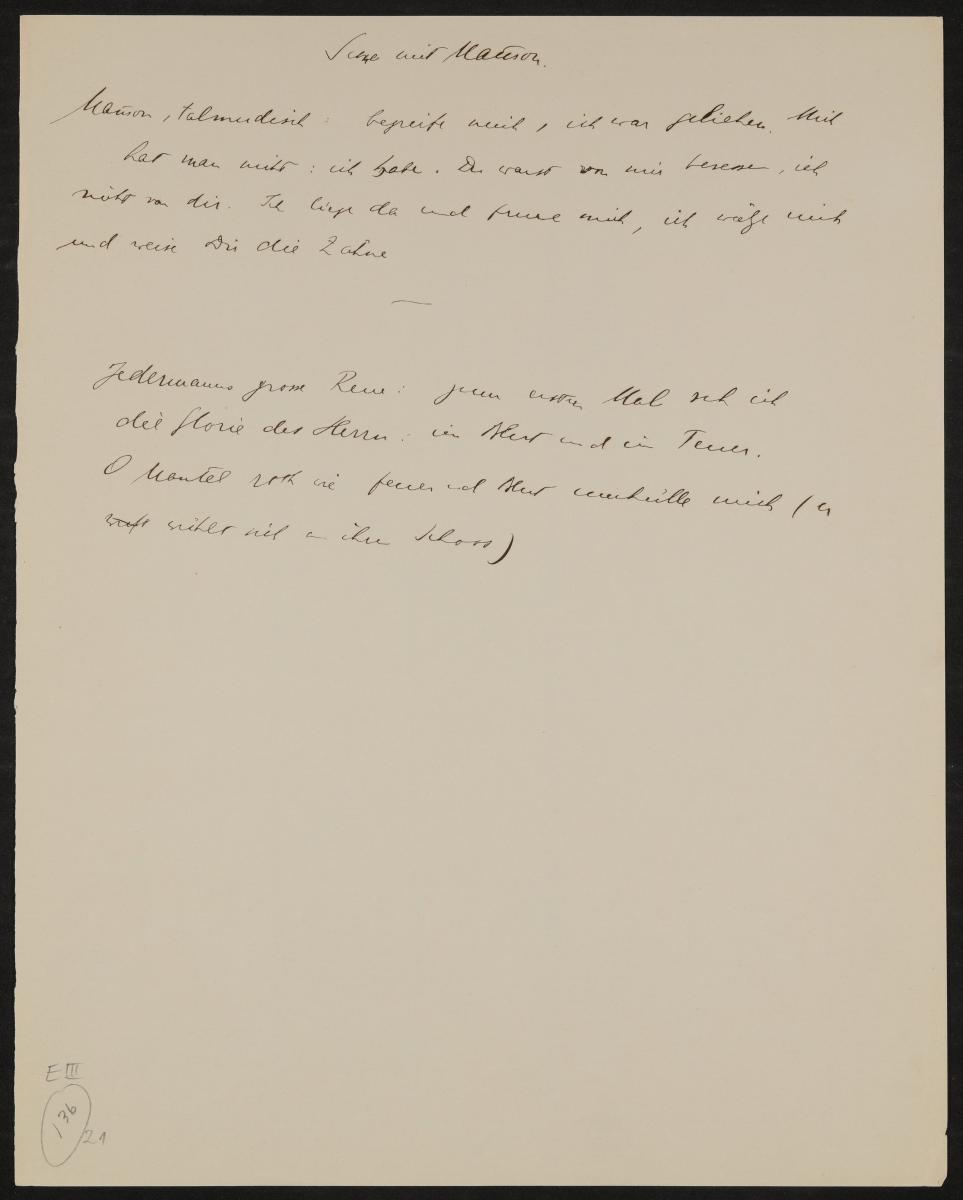 Scene mit Mam̄on.
Mam̄on, talmudisch: begreife mich, ich war geliehen. Mich
hat man nicht: ich habe. Du warst von mir besessen, ich
nicht von dir. Ich liege da und freue mich, ich wälze mich
und weise Dir die Zähne
—
Jedermanns grosse Reue: zum ersten Mal seh ich
die Glorie des Herrn: im Blut und im Feuer.
O Mantel roth wie Feuer und Blut umhülle mich (er
wühlt sich in ihren Schoos)
E III
136
21